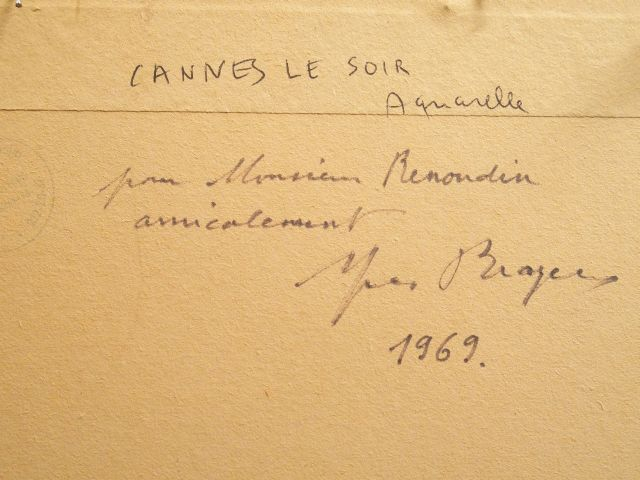 CANNES LE SOIR
Aquarelle
pour Monsieur Renoudin
amicalement
Yves Brayer
1969.